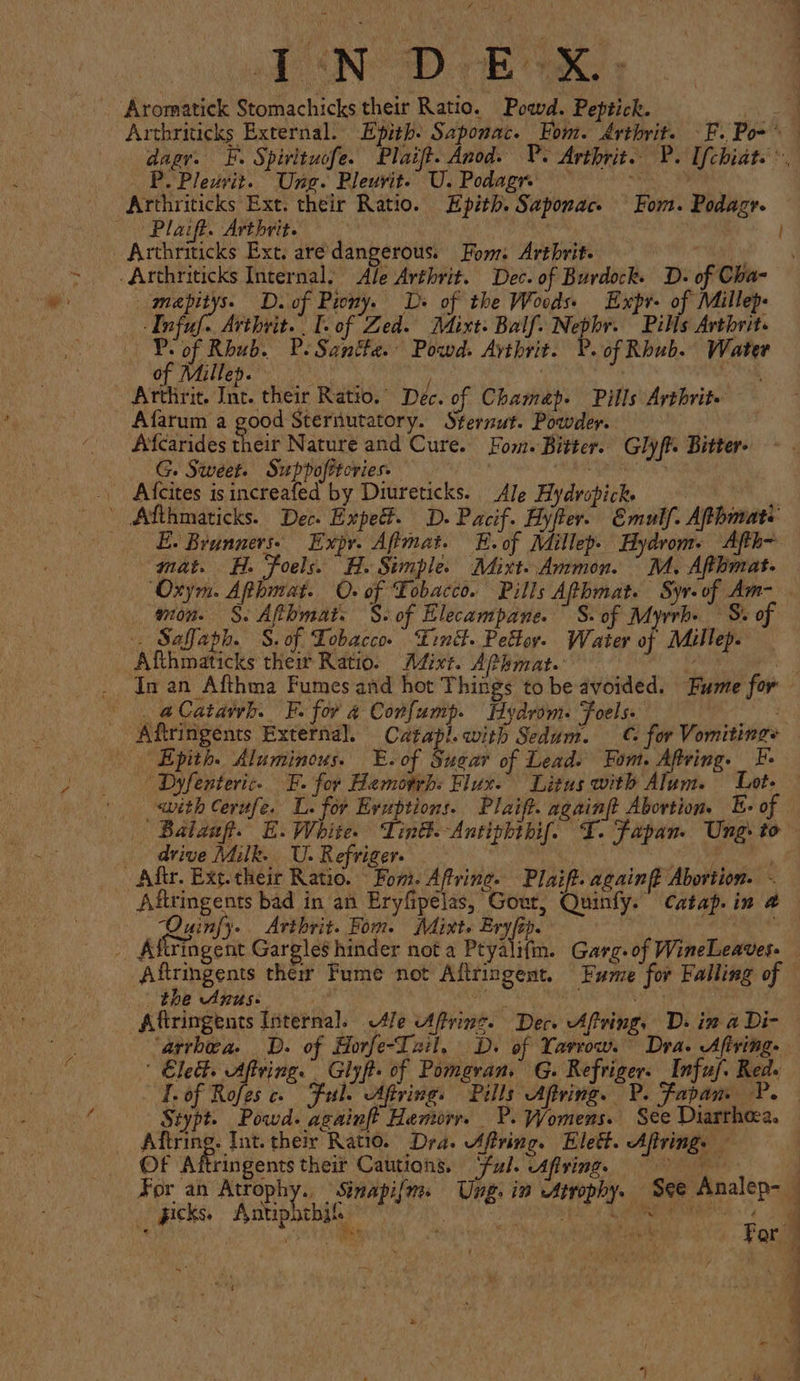 INDEX.
Aromatick Stomachicks their Ratio. Powd. Peptick.
Arthriticks External. Epith. Saponac. Fom. Arthrit. F. Po-
dagr. F. Spirituoſe. Plaiſt. Anod. P. Arthrit. P. Iſchiat.
P. Pleurit. Ung. Pleurit. U. Podagr.
Arthriticks Ext. their Ratio. Epith. Saponac. Fom. Podagr.
Plaiſt. Arthrit.
Arthriticks Ext. are dangerous. Fom. Arthrit.
Arthriticks Internal. Ale Arthrit. Dec. of Burdock. D. of Cha-
mæpitys. D. of Piony. D. of the Woods. Expr. of Millep.
Infuſ. Arthrit. I. of Zed. Mixt. Balſ. Nephr. Pills Arthrit.
P. of Rhub. P. Sanctæ. Powd. Arthrit. P. of Rhub. Water
of Millep.
Arthrit. Int. their Ratio. Dec. of Chamæp. Pills Arthrit.
Aſarum a good Sternutatory. Sternut. Powder.
Aſcarides their Nature and Cure. Fom. Bitter. Glyſt. Bitter.
G. Sweet. Suppoſitories.
Aſcites is increaſed by Diureticks. Ale Hydropick.
Aſthmaticks. Dec. Expect. D. Pacif. Hyſter. Emulſ. Aſthmat.
E. Brunners. Expr. Aſtmat. E. of Millep. Hydrom. Aſth-
mat. H. Joels. H. Simple. Mixt. Ammon. M. Aſthmat.
Oxym. Aſthmat. O. of Tobacco. Pills Aſthmat. Syr. of Am-
mon. S. Aſthmat. S. of Elecampane. S. of Myrrh. S. of
Saſſaph. S. of Tobacco. Tinct. Pector. Water of Millep.
Aſthmaticks their Ratio. Mixt. Aſthmat.
In an Aſthma Fumes and hot Things to be avoided. Fume for
a Catarrh. F. for a Conſump. Hydrom. Joels.
Aſtringents External. Catapl. with Sedum. C. for Vomitings
Epith. Aluminous. E. of Sugar of Lead. Fom. Aſtring. F.
Dyſenteric. F. for Hemorrh. Flux. Litus with Alum. Lot.
with Ceruſe. L. for Eruptions. Plaiſt. againſt Abortion. E. of
Balauſt. E. White. Tinct. Antiphthiſ. T. Japan. Ung. to
drive Milk. U. Refriger.
Aſtr. Ext. their Ratio. Fom. Aſtring. Plaiſt. againſt Abortion.
Aſtringents bad in an Eryſipelas, Gout, Quinſy. Catap. in a
Quinſy. Arthrit. Fom. Mixt. Eryſip.
Aſtringent Gargles hinder not a Ptyaliſm. Garg. of Wine Leaves.
Aſtringents their Fume not Aſtringent. Fume for Falling of
the Anus.
Aſtringents Internal. Ale Aſtring. Dec. Aſtring. D. in a Di-
arrhœa. D. of Horſe-Tail. D. of Yarrow. Dra. Aſtring.
Elect. Aſtring. Glyſt. of Pomgran. G. Refriger. Infuſ. Red.
I. of Roſes c. Jul. Aſtring. Pills Aſtring. P. Japan. P.
Stypt. Powd. againſt Hemorr. P. Womens. See Diarrhœa.
Aſtring. Int. their Ratio. Dra. Aſtring. Elect. Aſtring.
Of Aſtringents their Cautions. Jul. Aſtring.
For an Atrophy. Sinapiſm. Ung. in Atrophy. See Analep-
ticks. Antiphthiſ.
For